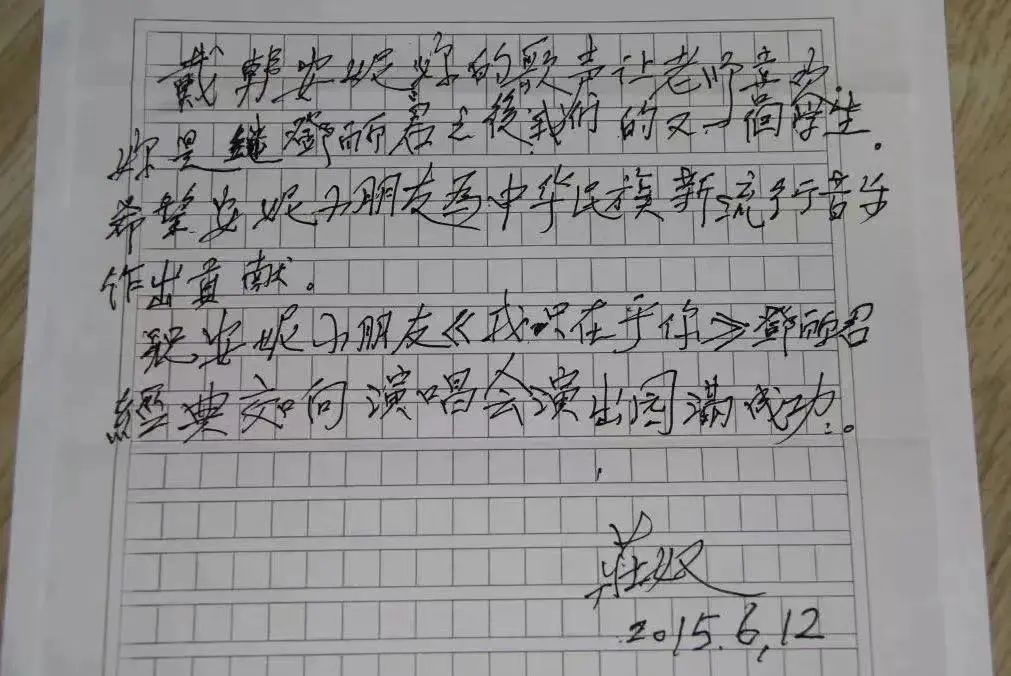 戴韩安妮妳的歌声让老师喜欢.
妳是继鄧丽君之後我们的又一個学生.
希望安妮小朋友為中华民族新流行音乐
作出貢献。
祝安妮小朋友《我只在乎你》鄧丽君
經典交响演唱会演出圆满成功.。
莊奴
2015.6,12